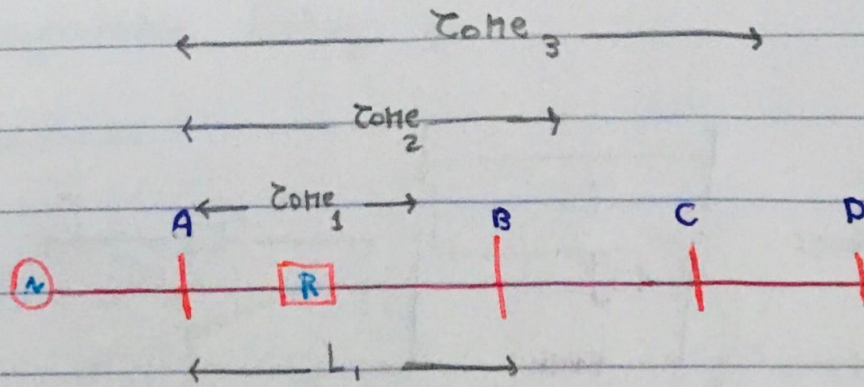 Zone 3
Zone 2
Zone 1
A B C D
~ R
L1